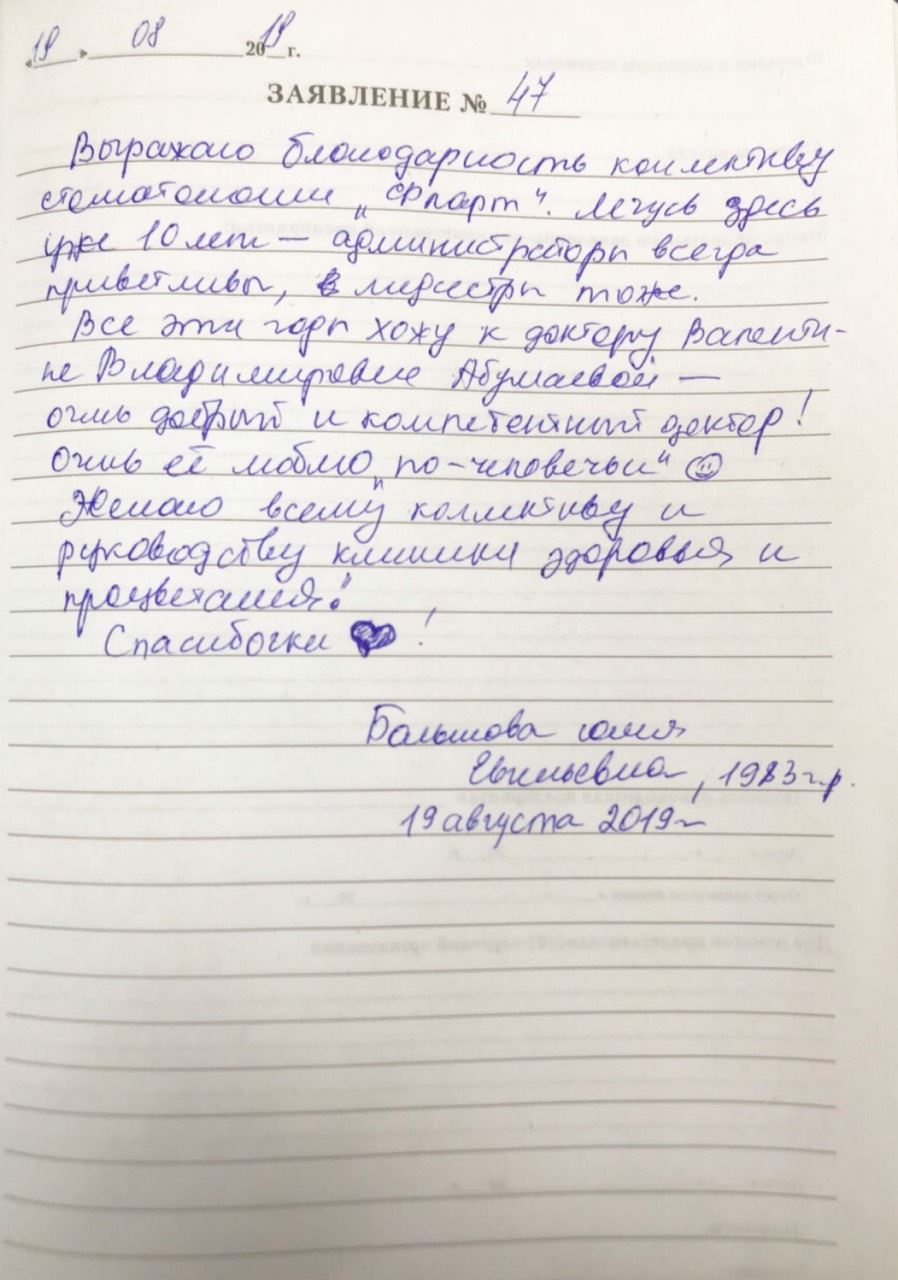 «19» 08 2019 г.
ЗАЯВЛЕНИЕ № 47
Выражаю благодарность коллективу
стоматологии „Фларт“. Лечусь здесь
уже 10 лет — администраторы всегда
приветливы, медсестры тоже.
Все эти годы хожу к доктору Валенти-
не Владимировне Абумаевой —
очень добрый и компетентный доктор!
Очень её люблю „по-человечьи“ ☺
Желаю всему коллективу и
руководству клиники здоровья и
процветания!
Спасибочки ♥!
Юлия
Евгеньевна, 1983 г.р.
19 августа 2019 г